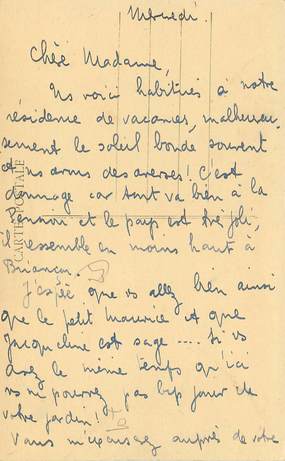 Mercredi.
Chère Madame,
Ns voici habitués à notre
résidence de vacances, malheureu-
sement le soleil boude souvent
et ns avons des averses ! C'est
dommage car tout va bien à la
Pension et le pays est très joli,
il ressemble en moins haut à
Briançon.
J'espère que vs allez bien ainsi
que le petit Maurice et que
Jacqueline est sage .... Si vs
avez le même temps qu'ici
vs ne pourrez pas bcp jouir de
votre jardin !
Vous m'excuserez auprès de votre
CARTE POSTALE